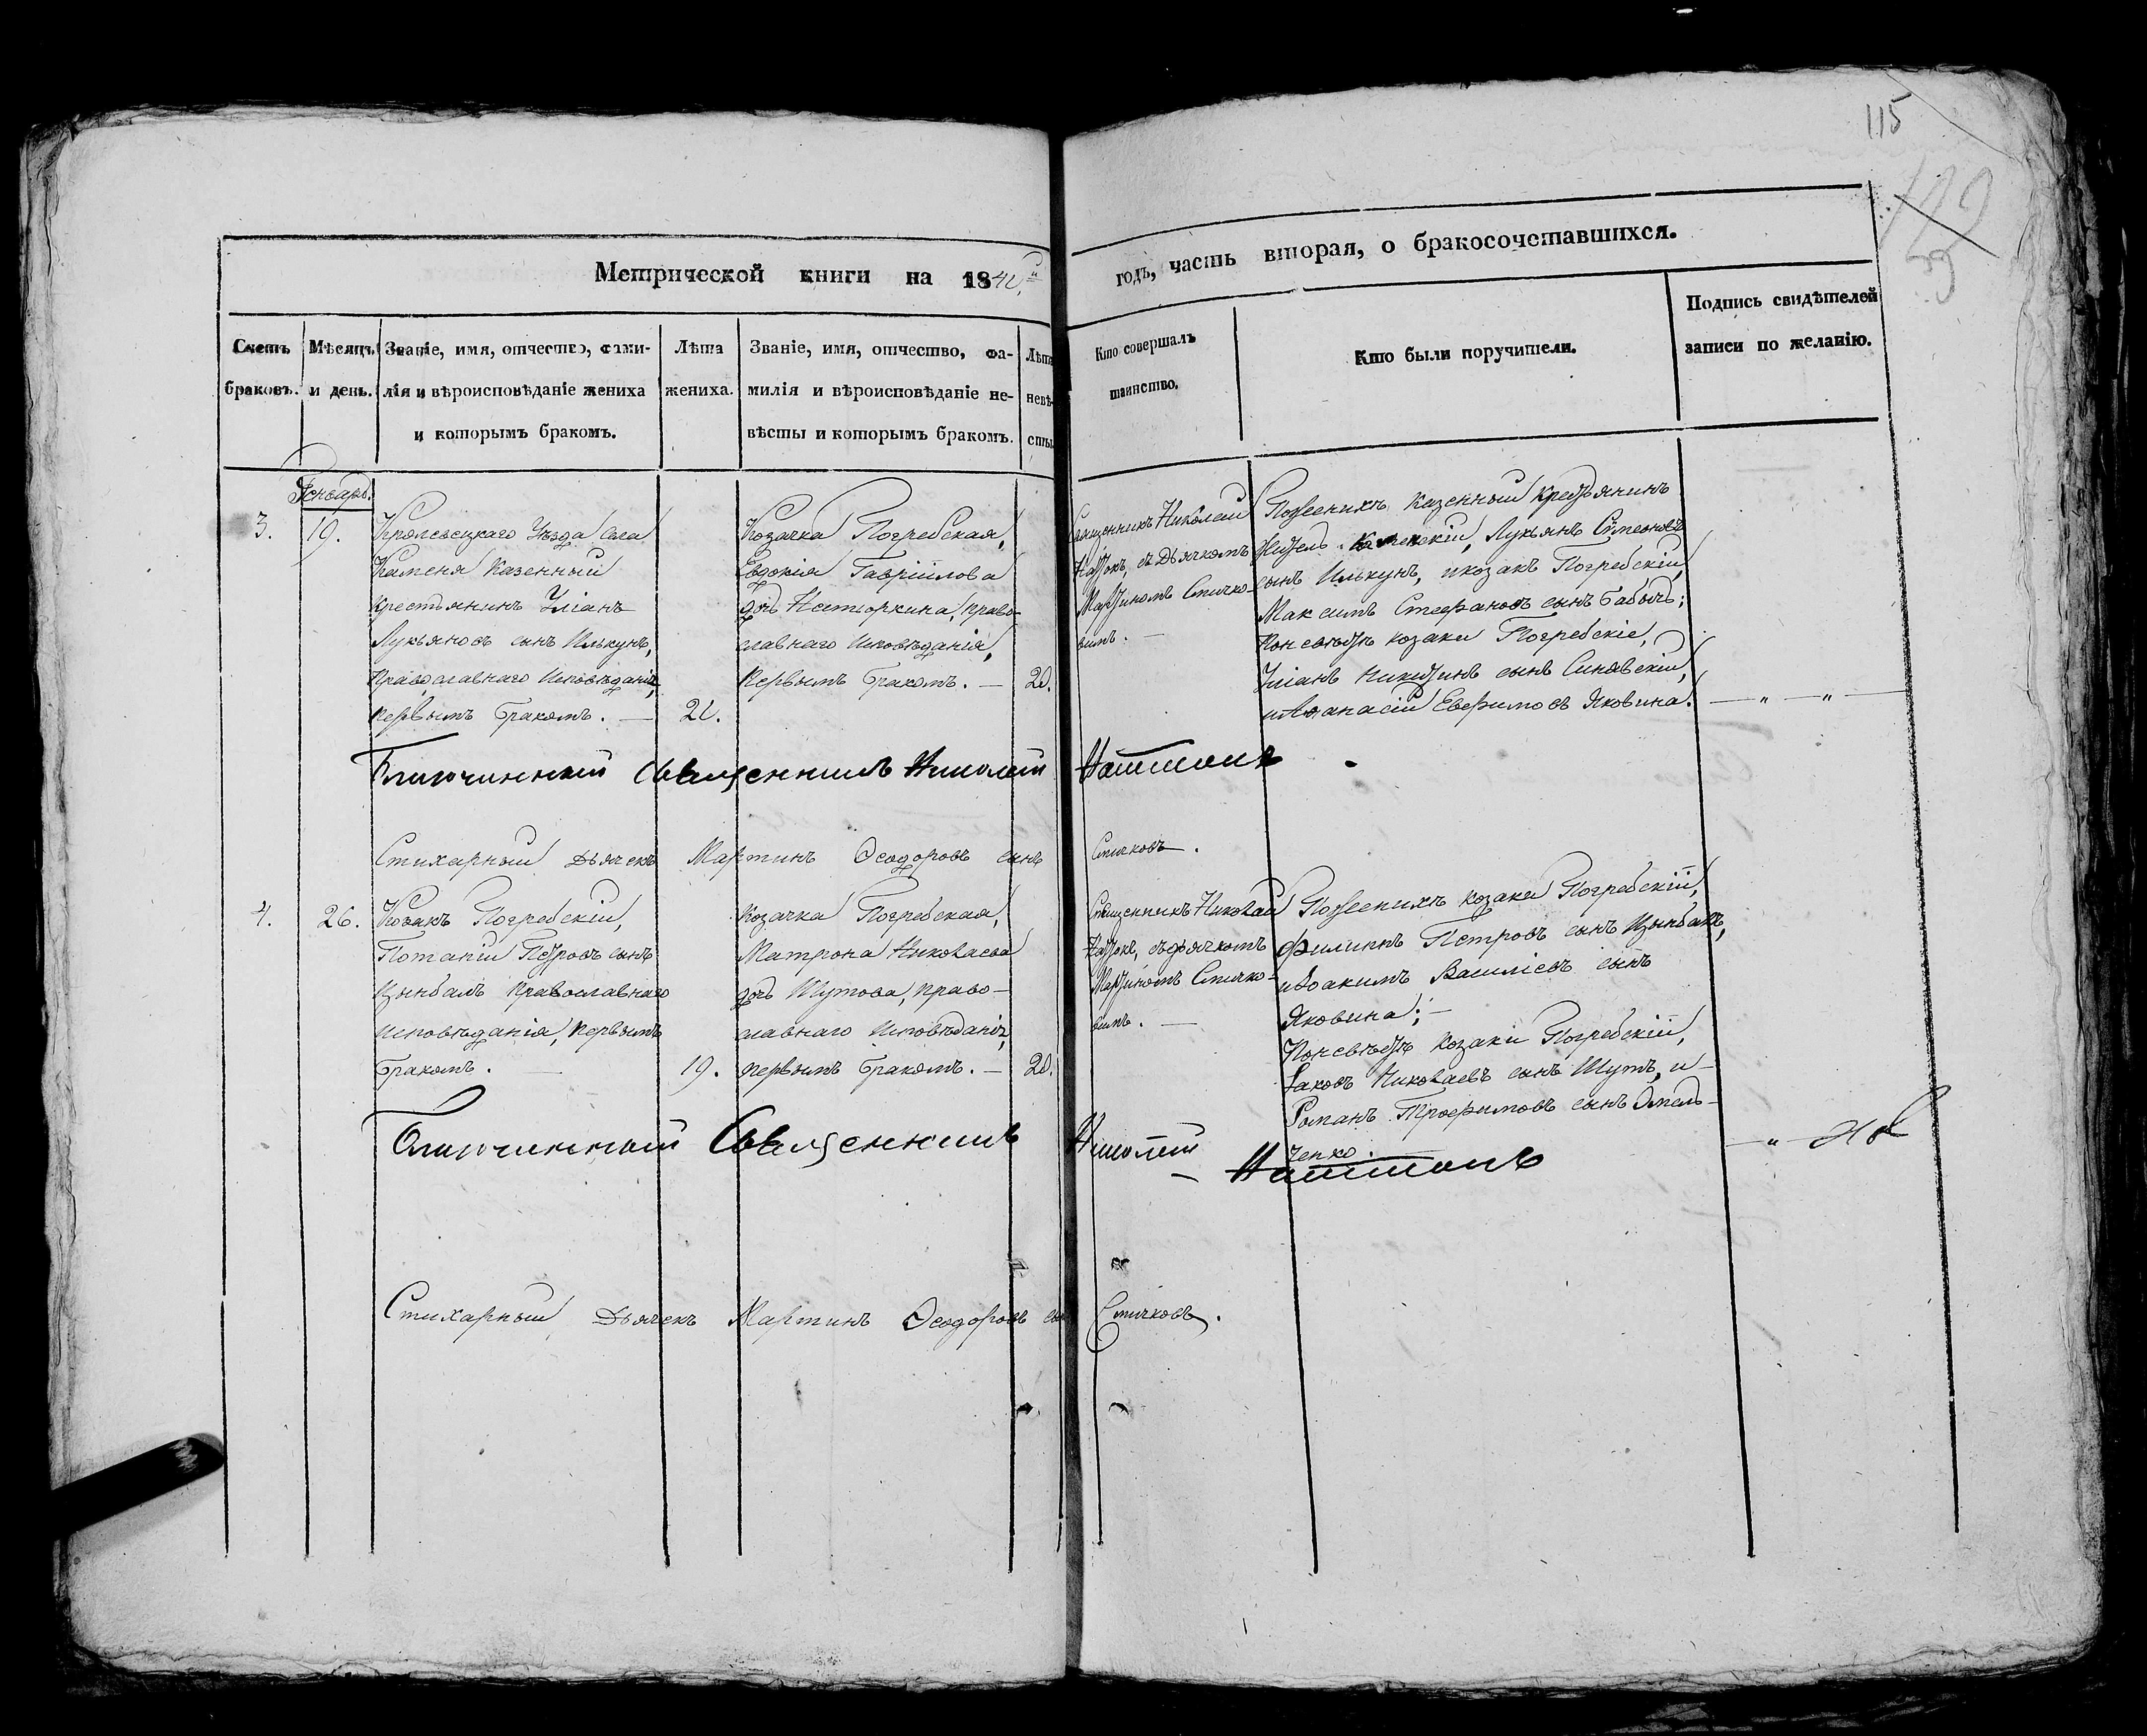 115
Метрической книги на 184
годъ, часть вторая, о бракосочетавшихся.
Счетъ браковъ.
Мѣсяцъ и день.
Званіе, имя, отчество, фами-
лія и вѣроисповѣданіе жениха
и которымъ бракомъ.
Лѣта
жениха.
Званіе, имя, отчество, фа-
милія и вѣроисповѣданіе не-
вѣсты и которымъ бракомъ.
Лѣта
невѣ-
сты
Кто совершалъ
таинство.
Кто были поручители.
Подпись свидѣтелей
записи по желанію.
Генварь.
3.
19.
Кролевецкаго Уѣзда Села
Каменя Казенный
Крестьянинъ Уліанъ
Лукьяновъ сынъ Илькунъ,
Православнаго Исповѣданія,
Первымъ Бракомъ. —
21.
Козачка Погребская,
Евдокія Гавріилова
дочь Нетюркина, право-
славнаго Исповѣданія,
Первымъ Бракомъ. —
20.
Священникъ Николай
съ Дьячкомъ
Мартиномъ Спичко-
вымъ. —
По Женихѣ Казенный Крестьянинъ
Житель Каменскій, Лукьянъ Симеоновъ
сынъ Илькунъ, и козакъ Погребскій,
Максимъ Стефановъ сынъ Бабичъ;
По невѣстѣ козаки Погребскіе,
Уліанъ Никитинъ сынъ Синявскій,
и Афанасій Евфимовъ Яковина.
Благочинный Священникъ Николай
Стихарный Дьячекъ Мартинъ Ѳеодоровъ сынъ Спичковъ.
4.
26.
Козакъ Погребскій,
Потапій Петровъ сынъ
Цынбалъ Православнаго
Исповѣданія, Первымъ
Бракомъ. —
19.
Козачка Погребская,
Матрона Николаева
дочь Шутова, право-
славнаго Исповѣданія,
первымъ Бракомъ. —
20.
Священникъ Николай
съ дьячкомъ
Мартиномъ Спичко-
вымъ. —
По Женихѣ козаки Погребскій,
Филиппъ Петровъ сынъ Цынбалъ,
и Іоакимъ Василіевъ сынъ
Яковина; —
По невѣстѣ Козаки Погребскій,
Іаковъ Николаевъ сынъ Шутъ, и
Романъ Трофимовъ сынъ Омель-
ченко.
Благочинный Священникъ Николай
Стихарный Дьячекъ Мартинъ Ѳеодоровъ сынъ Спичковъ.